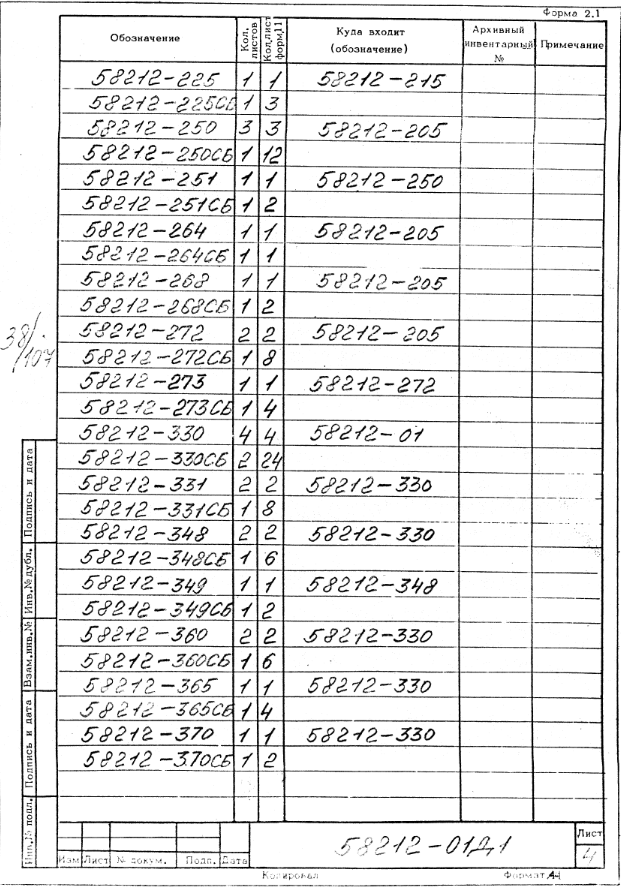 Форма 2.1
Обозначение Кол. листов Кол.лист форм.11 Куда входит (обозначение) Архивный инвентарный № Примечание
58212-225 1 1 58212-215
58212-225СБ 1 3
58212-250 3 3 58212-205
58212-250СБ 1 12
58212-251 1 1 58212-250
58212-251СБ 1 2
58212-264 1 1 58212-205
58212-264СБ 1 1
58212-268 1 1 58212-205
58212-268СБ 1 2
58212-272 2 2 58212-205
58212-272СБ 1 8
58212-273 1 1 58212-272
58212-273СБ 1 4
58212-330 4 4 58212-01
58212-330СБ 2 24
58212-331 2 2 58212-330
58212-331СБ 1 8
58212-348 2 2 58212-330
58212-348СБ 1 6
58212-349 1 1 58212-348
58212-349СБ 1 2
58212-360 2 2 58212-330
58212-360СБ 1 6
58212-365 1 1 58212-330
58212-365СБ 1 4
58212-370 1 1 58212-330
58212-370СБ 1 2
38/107
Подпись и дата
Инв.№ дубл.
Взам.инв.№
Подпись и дата
Инв.№ подл.
Изм Лист № докум. Подп. Дата
58212-01Д1
Лист
4
Копировал Формат А4